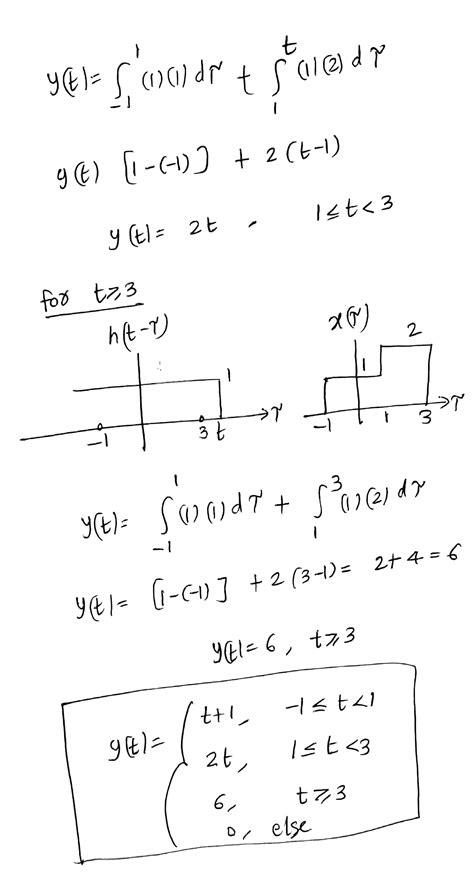 y(t)= ∫_{-1}^{1} (1)(1) dτ + ∫_{1}^{t} (1)(2) dτ
y(t) [1-(-1)] + 2(t-1)
y(t)= 2t , 1≤t<3
for t≥3
h(t-τ)
1
-1 3 t →τ
x(τ)
2
1
-1 1 3 →τ
y(t)= ∫_{-1}^{1} (1)(1) dτ + ∫_{1}^{3} (1)(2) dτ
y(t)= [1-(-1)] + 2(3-1)= 2+4=6
y(t)=6, t≥3
y(t)= { t+1, -1≤t<1
2t, 1≤t<3
6, t≥3
0, else